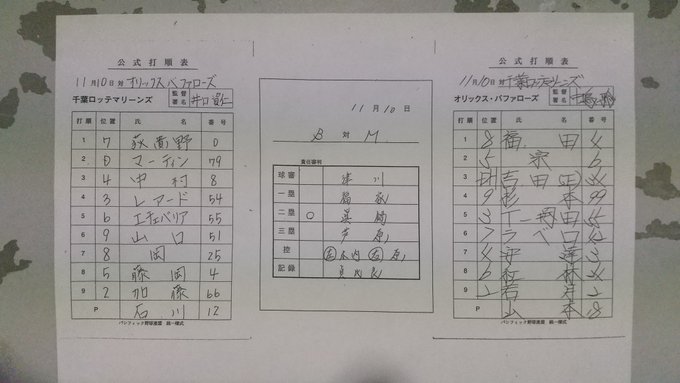 公式打順表
11月10日 対 オリックスバファローズ
千葉ロッテマリーンズ 監督署名 井口資仁
打順 位置 氏名 番号
1 7 荻貴野 0
2 D マーティン 79
3 4 中村 8
4 3 レアード 54
5 6 エチェバリア 55
6 9 山口 51
7 8 岡 25
8 5 藤岡 4
9 2 加藤 66
P 石川 12
パシフィック野球連盟 統一様式
11月10日
B 対 M
責任審判
球審 津川
一塁 福家
二塁 ○
三塁 芦原
控
記録
公式打順表
11月10日 対 千葉ロッテマリーンズ
オリックス・バファローズ 監督署名
打順 位置 氏名 番号
1 8 福田 4
2 5 宗 6
3 吉田正 34
4 9 杉本 99
5 3 T-岡田 55
6 7 ラベロ
7 4 安達 3
8 6 紅林 24
9 2 若月 2
P 山本 18
パシフィック野球連盟 統一様式